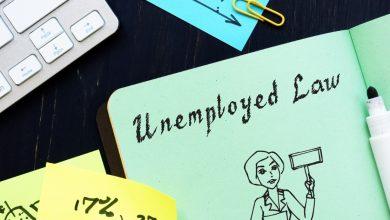 Unemployed Law
17%